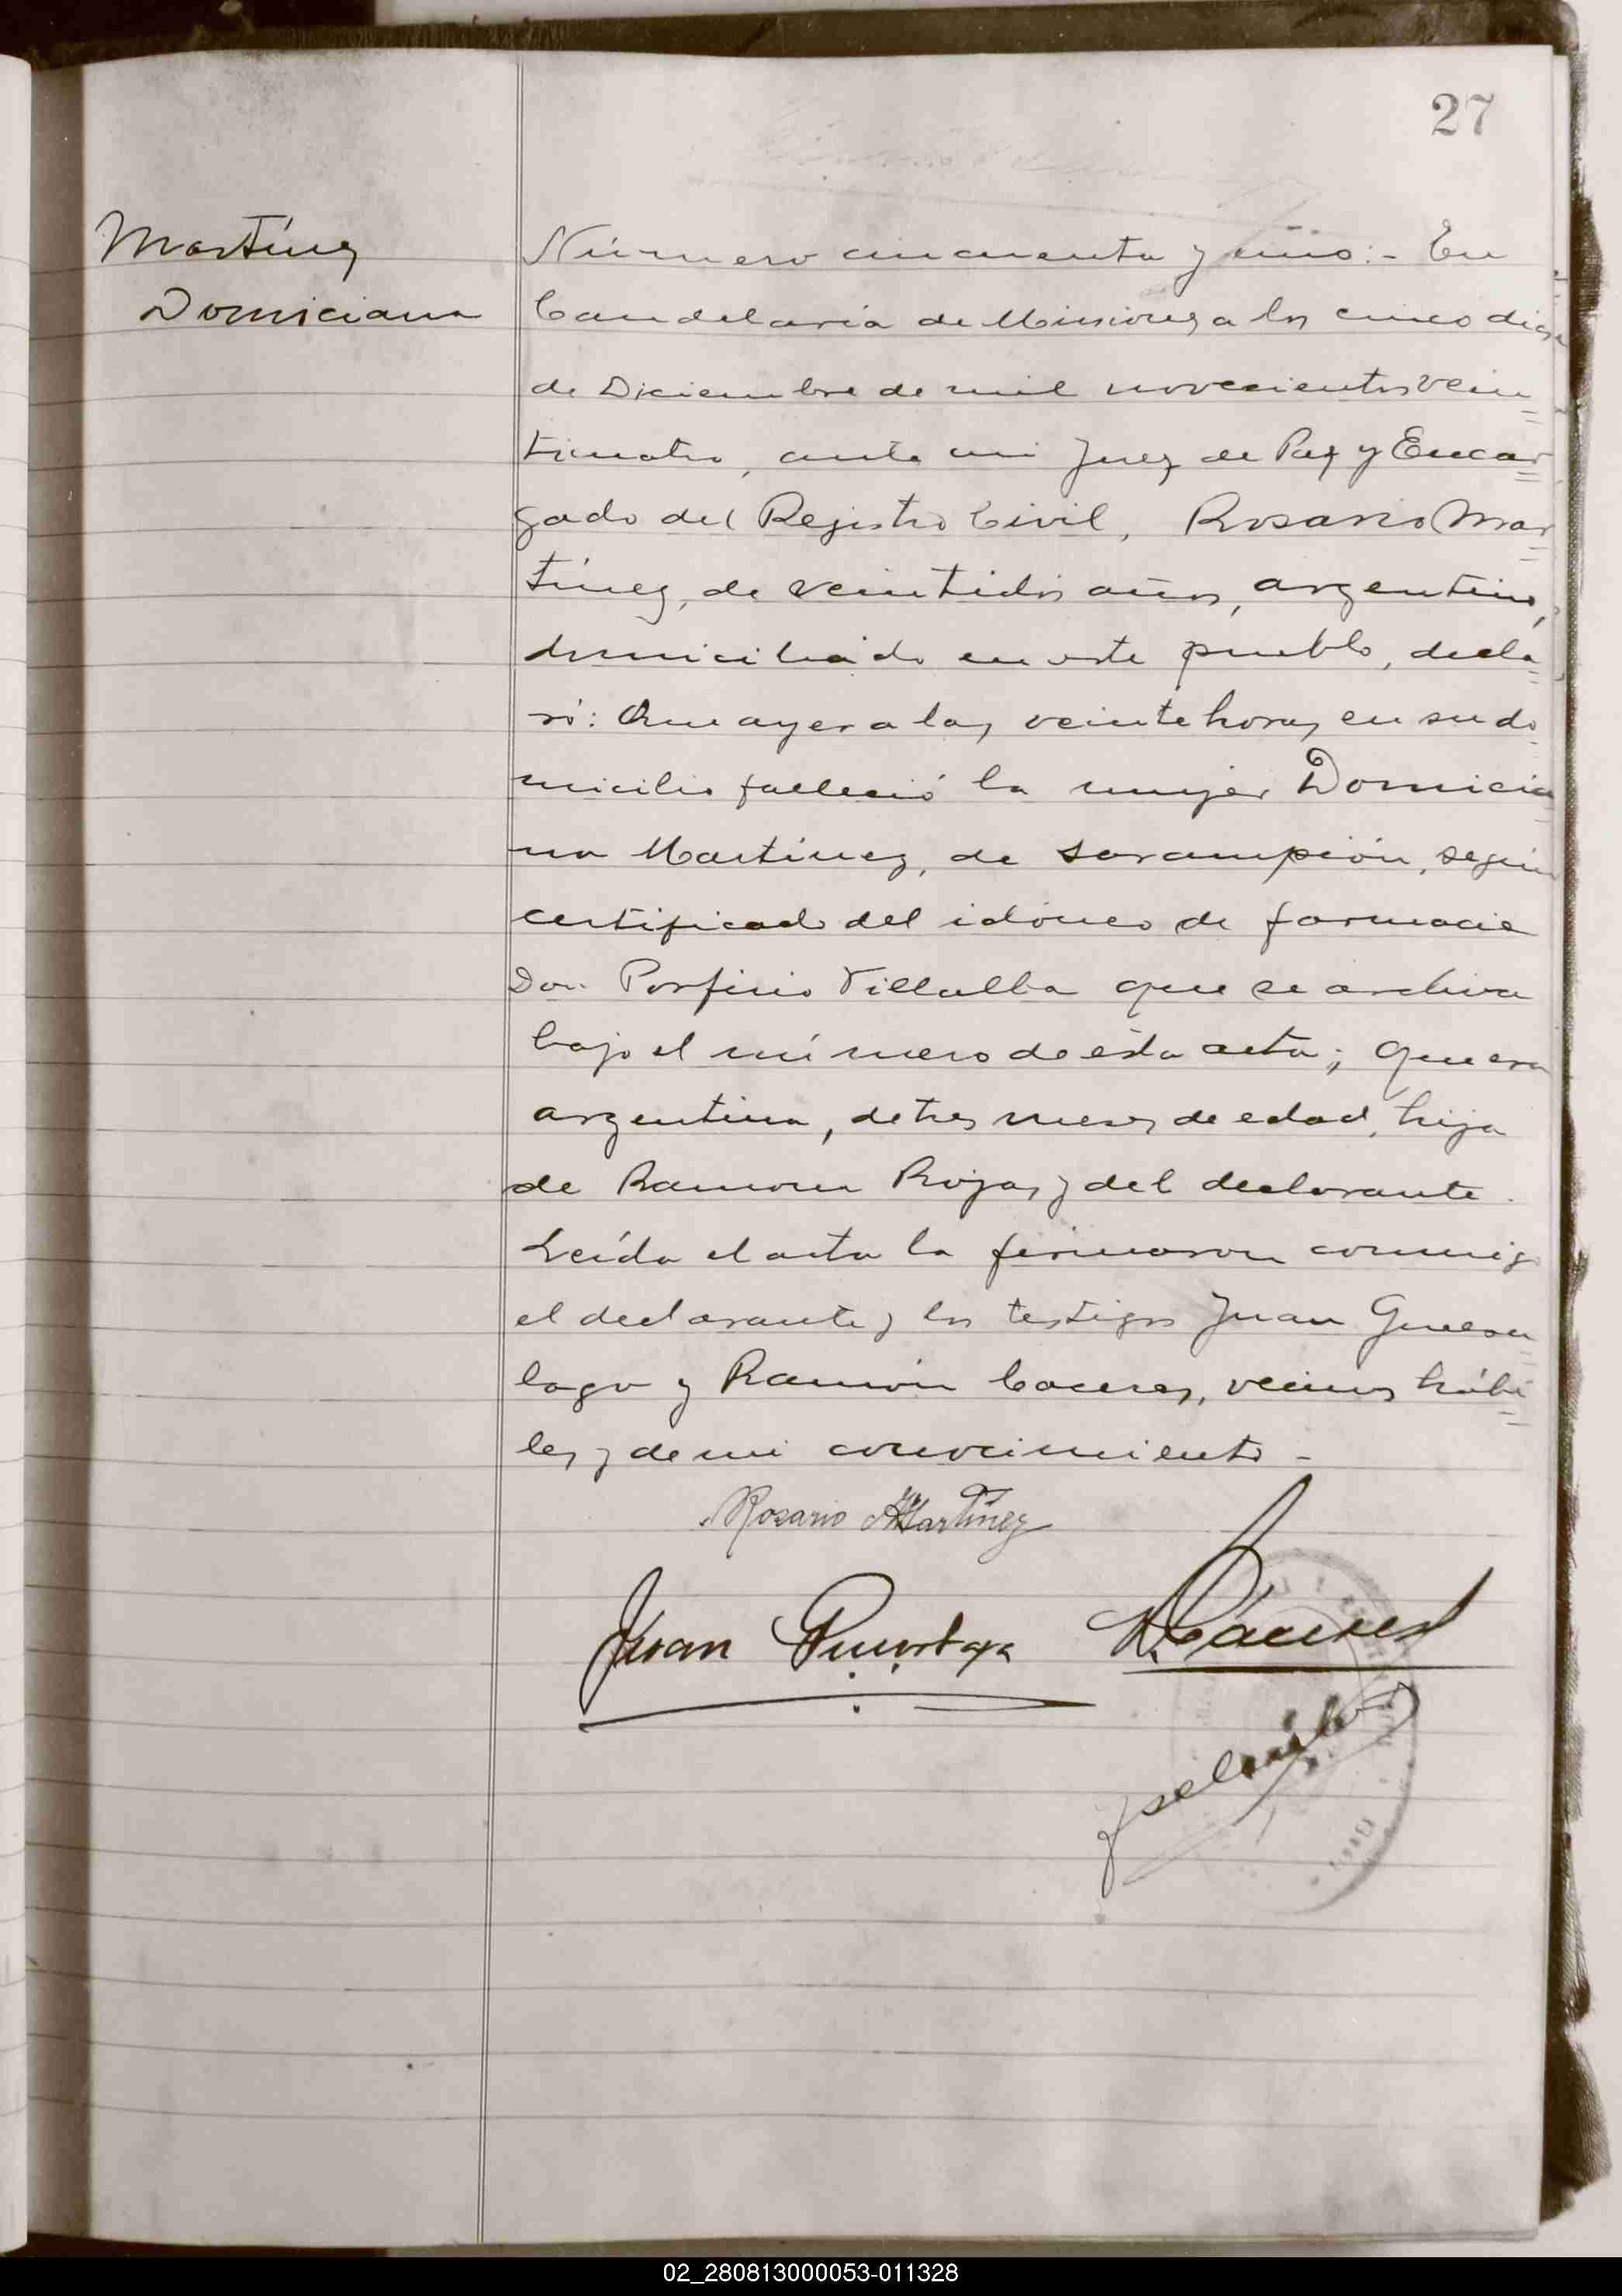 27
Martínez
Domiciana
Número cincuenta y uno:- En
Candelaria de Misiones a los cinco dias
de Diciembre de mil novecientos vein=
ticuatro, ante mi Juez de Paz y Encar=
gado del Registro Civil, Rosario Mar=
tínez, de veintidos años, argentino,
domiciliado en este pueblo, decla=
ró: Que ayer a las veinte horas en su do=
micilio falleció la mujer Domicia=
na Martinez, de sarampión, según
certificado del idóneo de farmacia
Don Porfirio Villalba que se archiva
bajo el número de ésta acta; que era
argentina, de tres meses de edad, hija
de Ramona Rojas y del declarante.
Leída el acta la firmaron conmigo
el declarante y los testigos Juan
y Ramón Caceres, vecinos hábi=
les y de mi conocimiento -
Rosario Martínez
Juan
R. Cáceres
02_280813000053-011328